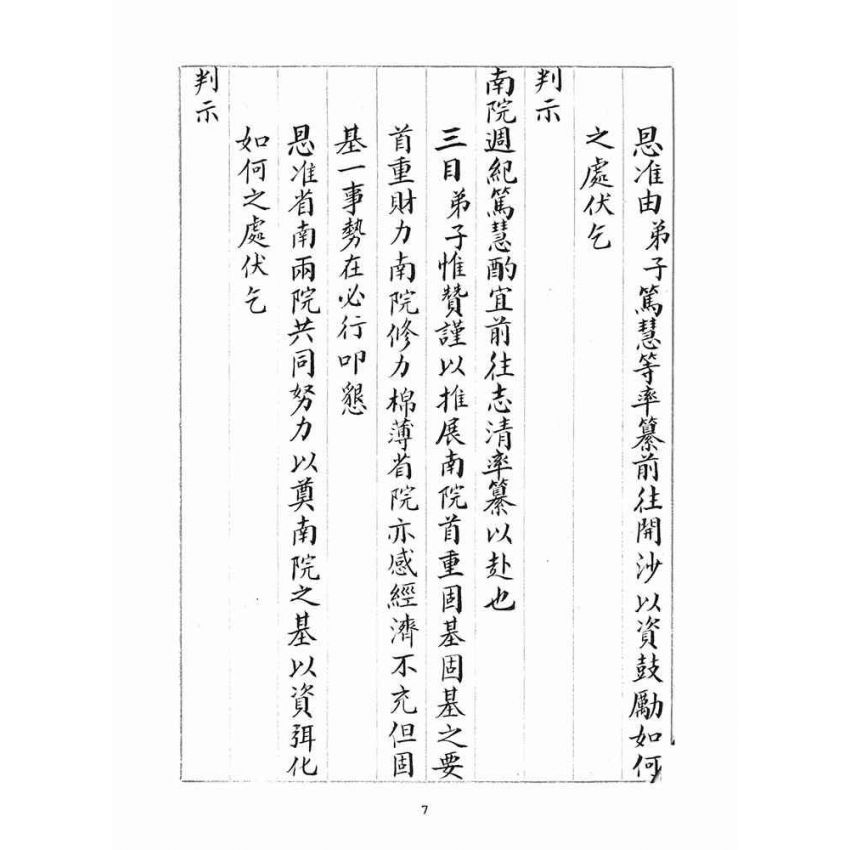 恩准由弟子篤慧等率纂前往開沙以資鼓勵如何
之處伏乞
判示
南院週紀篤慧酌宜前往志清率纂以赴也
三目弟子惟贊謹以推展南院首重固基固基之要
首重財力南院修力棉薄省院亦感經濟不充但固
基一事勢在必行叩懇
恩准省南兩院共同努力以奠南院之基以資弭化
如何之處伏乞
判示
7